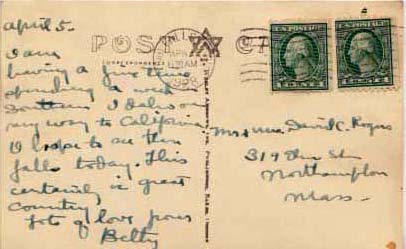 April 5.
I am
having a fine time
spending a week
Southern Idaho on
my way to California
I hope to see the
falls today. This
certainly is great
country
Lots of love from
Betty
POST CARD
CORRESPONDENCE
APR
1923
U.S. POSTAGE
U.S. POSTAGE
Mr & Mrs. David C. Rogers
319 Elm St.
Northampton
Mass.